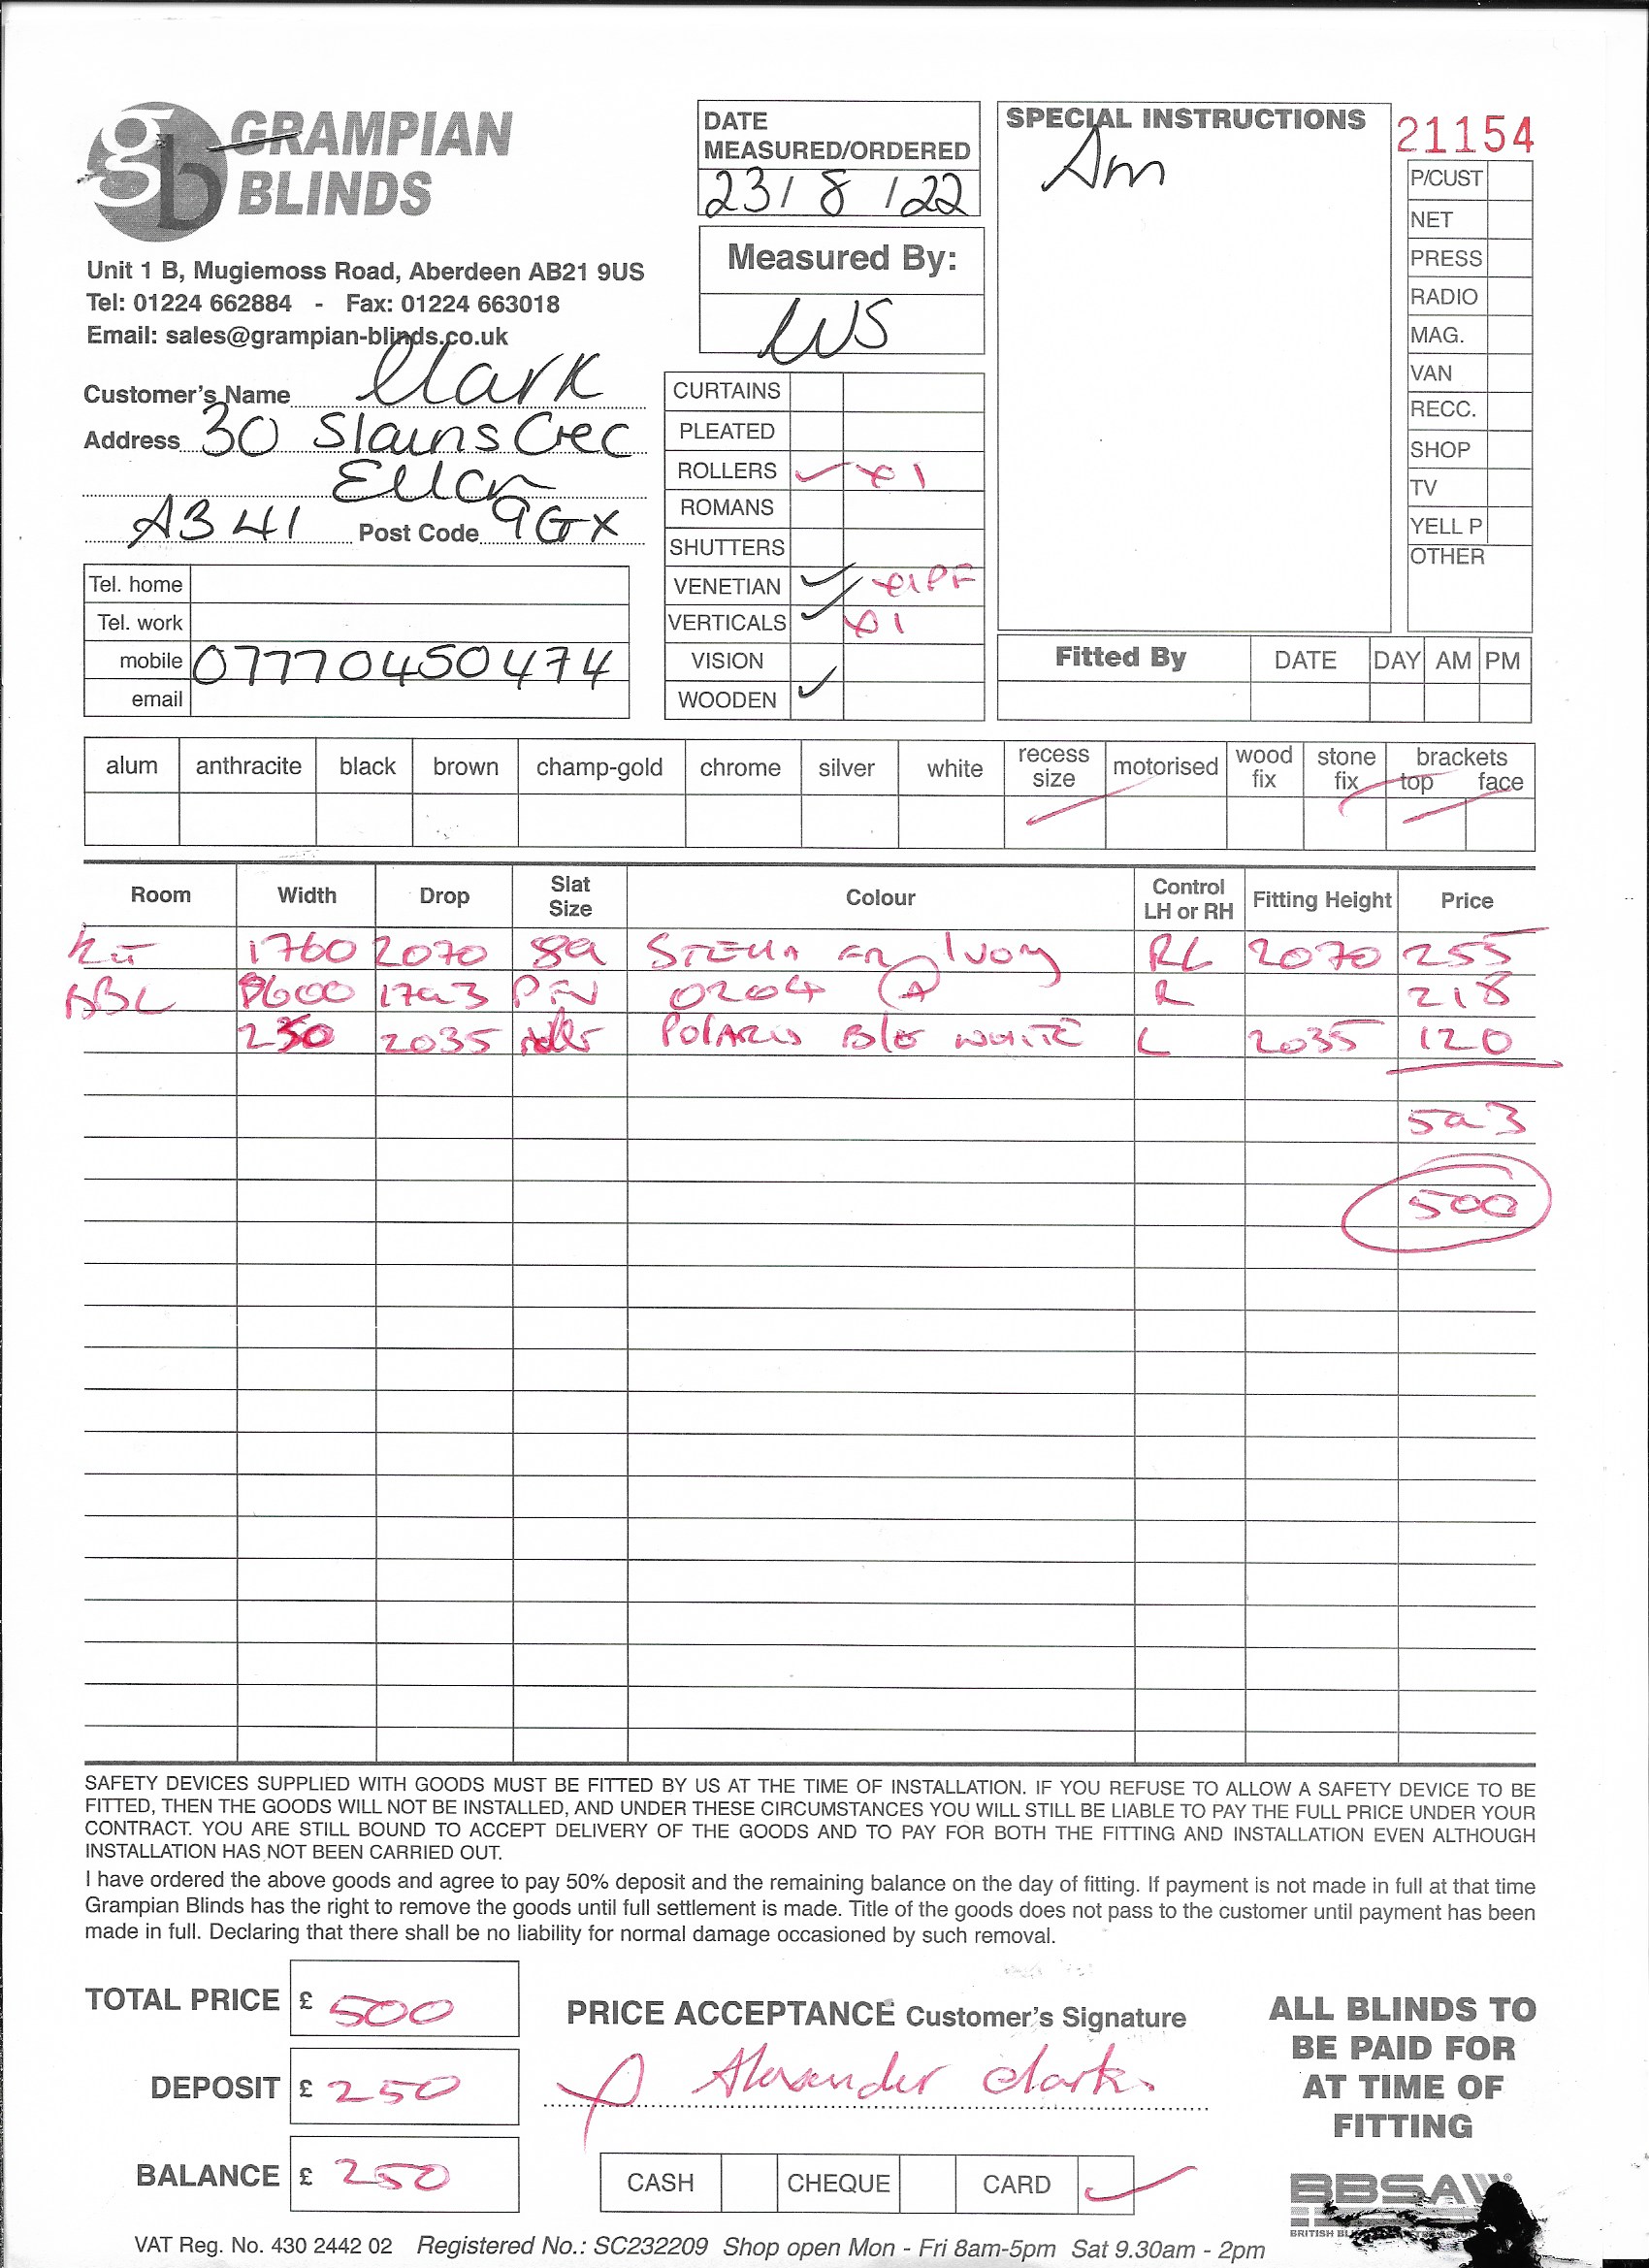 GRAMPIAN
BLINDS
Unit 1 B, Mugiemoss Road, Aberdeen AB21 9US
Tel: 01224 662884 - Fax: 01224 663018
Email: sales@grampian-blinds.co.uk
Customer's Name Clark
Address 30 Slains Crec
Ellon
AB41 Post Code 9GX
Tel. home
Tel. work
mobile 07770450474
email
DATE
MEASURED/ORDERED
23/8/22
Measured By:
WS
CURTAINS
PLEATED
ROLLERS x1
ROMANS
SHUTTERS
VENETIAN x1PF
VERTICALS x1
VISION
WOODEN
SPECIAL INSTRUCTIONS
Am
21154
P/CUST
NET
PRESS
RADIO
MAG.
VAN
RECC.
SHOP
TV
YELL P
OTHER
Fitted By DATE DAY AM PM
alum anthracite black brown champ-gold chrome silver white recess size motorised wood fix stone fix brackets top face
Room Width Drop Slat Size Colour Control LH or RH Fitting Height Price
Kit 1760 2070 89 Ivory RL 2070 255
1793 0204 A R 218
2035 Roller POLARIS B/O WHITE L 2035 120
593
500
SAFETY DEVICES SUPPLIED WITH GOODS MUST BE FITTED BY US AT THE TIME OF INSTALLATION. IF YOU REFUSE TO ALLOW A SAFETY DEVICE TO BE
FITTED, THEN THE GOODS WILL NOT BE INSTALLED, AND UNDER THESE CIRCUMSTANCES YOU WILL STILL BE LIABLE TO PAY THE FULL PRICE UNDER YOUR
CONTRACT. YOU ARE STILL BOUND TO ACCEPT DELIVERY OF THE GOODS AND TO PAY FOR BOTH THE FITTING AND INSTALLATION EVEN ALTHOUGH
INSTALLATION HAS NOT BEEN CARRIED OUT.
I have ordered the above goods and agree to pay 50% deposit and the remaining balance on the day of fitting. If payment is not made in full at that time
Grampian Blinds has the right to remove the goods until full settlement is made. Title of the goods does not pass to the customer until payment has been
made in full. Declaring that there shall be no liability for normal damage occasioned by such removal.
TOTAL PRICE £ 500
DEPOSIT £ 250
BALANCE £ 250
PRICE ACCEPTANCE Customer's Signature
Alexander Clark.
CASH CHEQUE CARD
ALL BLINDS TO
BE PAID FOR
AT TIME OF
FITTING
BBSA
BRITISH
VAT Reg. No. 430 2442 02 Registered No.: SC232209 Shop open Mon - Fri 8am-5pm Sat 9.30am - 2pm